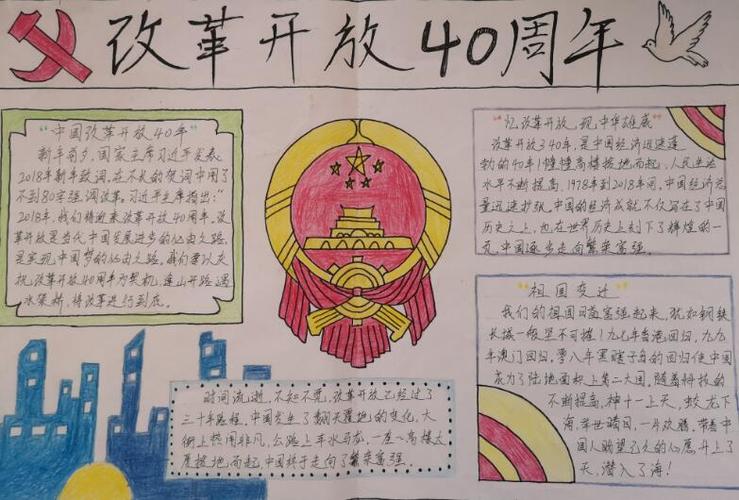 改革开放40周年
"中国改革开放40年"
新年前夕，国家主席习近平发表
2018年新年致词，在不长的贺词中用了
不到80字强调改革。习近平主席指出："
2018年，我们将迎来改革开放40周年。改
革开放是当代中国发展进步的必由之路，
是实现中国梦的必由之路。我们要以庆
祝改革开放40周年为契机，逢山开路，遇
水架桥，将改革进行到底。
"忆改革开放，现中华雄威"
改革开放了40年，是中国经济迅速蓬
勃的40年！幢幢高楼拔地而起，人民生活
水平不断提高，1978年到2018年间，中国经济总
量迅速扩张。中国的经济成就不仅写在了中国
历史之上，也在世界历史上刻下了辉煌的一
页，中国逐步走向繁荣富强。
"祖国变迁"
我们的祖国日益富强起来，犹如钢铁
长城一般坚不可摧！九七年香港回归，九九
年澳门回归，零八年黑瞎子岛的回归使中国
成为了陆地面积上第二大国，随着科技的
不断提高，神十一上天，蛟龙下
海，举世瞩目，一片欢腾。带着中
国人盼望已久的心愿升上了
天，潜入了海！
时间流逝，不知不觉，改革开放已经过了
三十年路程，中国发生了翻天覆地的变化，大
街上热闹非凡，公路上车水马龙，一座座高楼大
厦拔地而起，中国终于走向了繁荣富强。